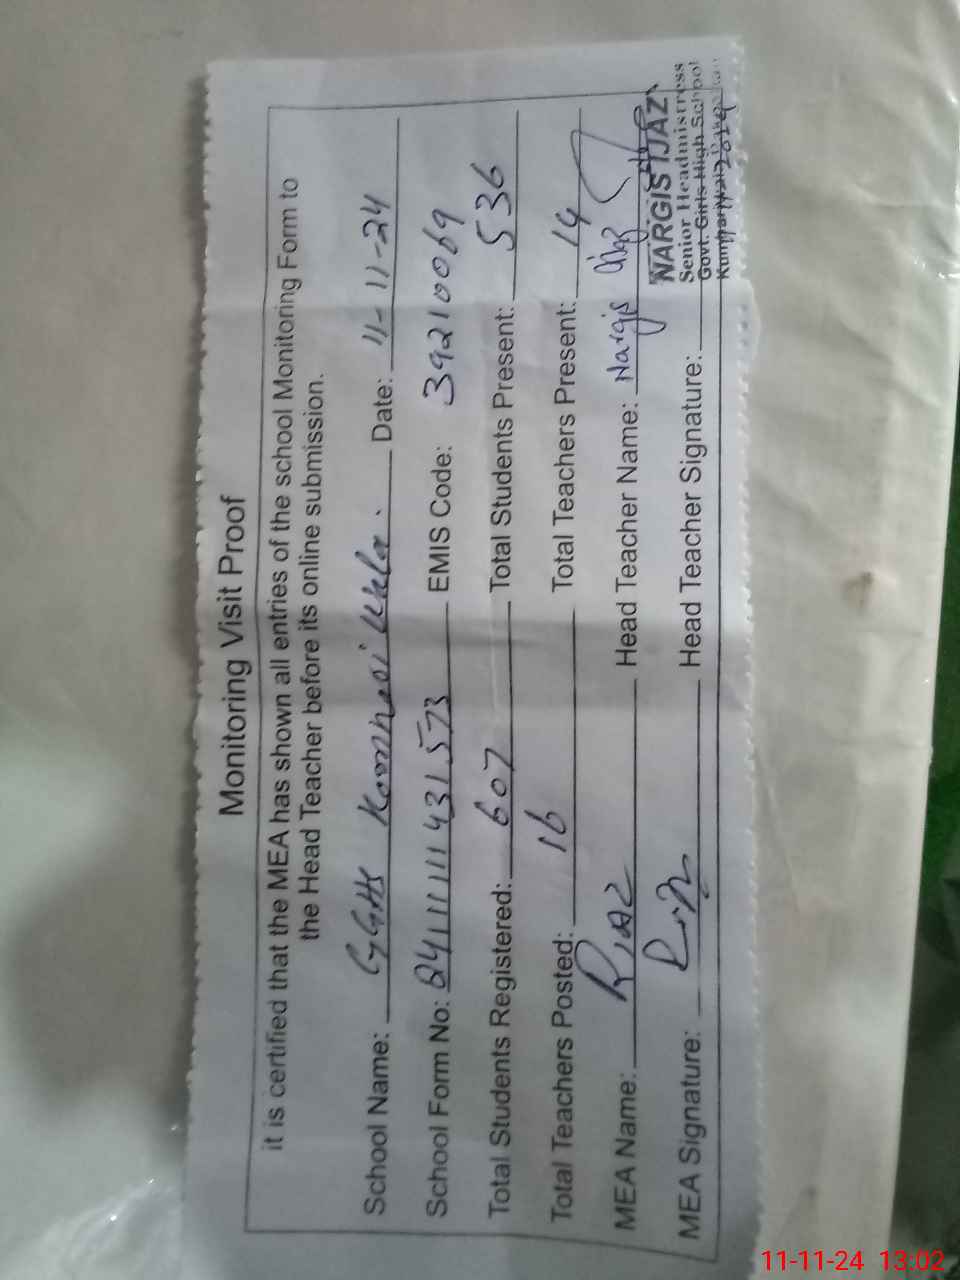 Monitoring Visit Proof
it is certified that the MEA has shown all entries of the school Monitoring Form to
the Head Teacher before its online submission.
School Name: GGHS Date: 11-11-24
School Form No: EMIS Code: 39210069
Total Students Registered: 607 Total Students Present: 536
Total Teachers Posted: 16 Total Teachers Present: 14
MEA Name: Riaz Head Teacher Name: Nargis
MEA Signature: Head Teacher Signature:
NARGIS IJAZ
Senior Headmistress
Govt. Girls High School
11-11-24 13:02